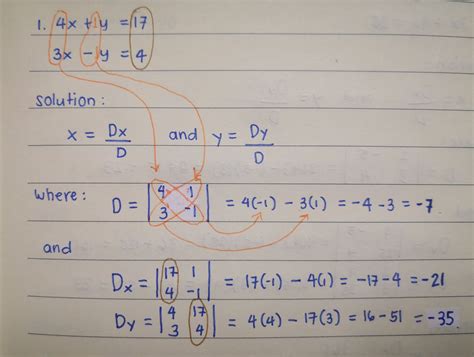 1. 4x + 1y = 17
3x - 1y = 4
solution :
x = Dx/D and y = Dy/D
where : D = |4 1| = 4(-1) - 3(1) = -4 - 3 = -7
|3 -1|
and
Dx = |17 1| = 17(-1) - 4(1) = -17 - 4 = -21
|4 -1|
Dy = |4 17| = 4(4) - 17(3) = 16 - 51 = -35
|3 4|